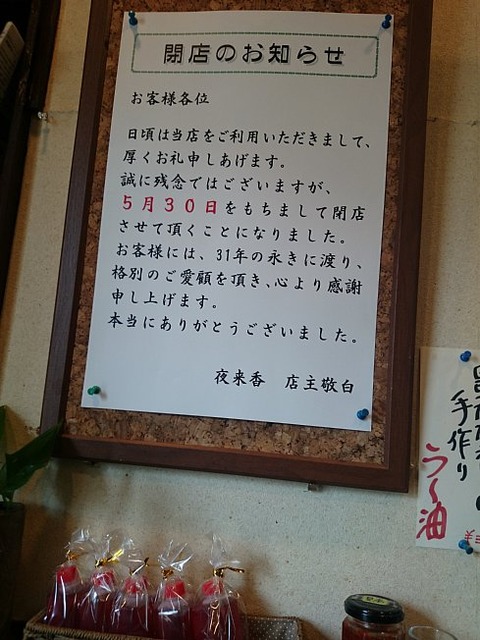 閉店のお知らせ
お客様各位
日頃は当店をご利用いただきまして、
厚くお礼申しあげます。
誠に残念ではございますが、
5月30日をもちまして閉店
させて頂くことになりました。
お客様には、31年の永きに渡り、
格別のご愛顧を頂き、心より感謝
申し上げます。
本当にありがとうございました。
夜来香 店主敬白
手作り
らー油